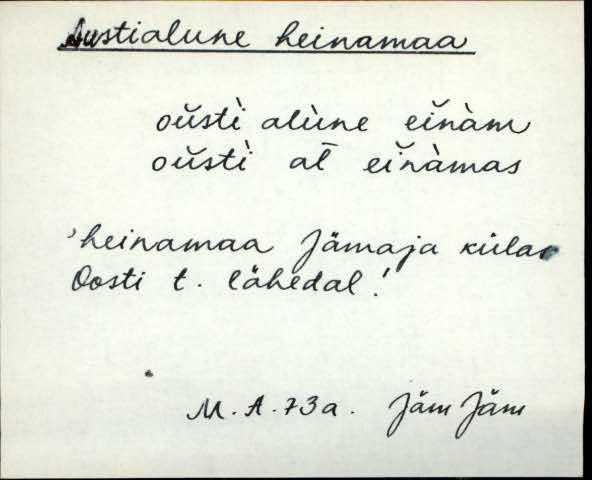 Austialune heinamaa
oŭstì alùne eĭnàm
oŭstì al̄ eĭnàmas
'heinamaa Jämaja külas
Oosti t. lähedal'
M. A. 73a. Jäm Jäm